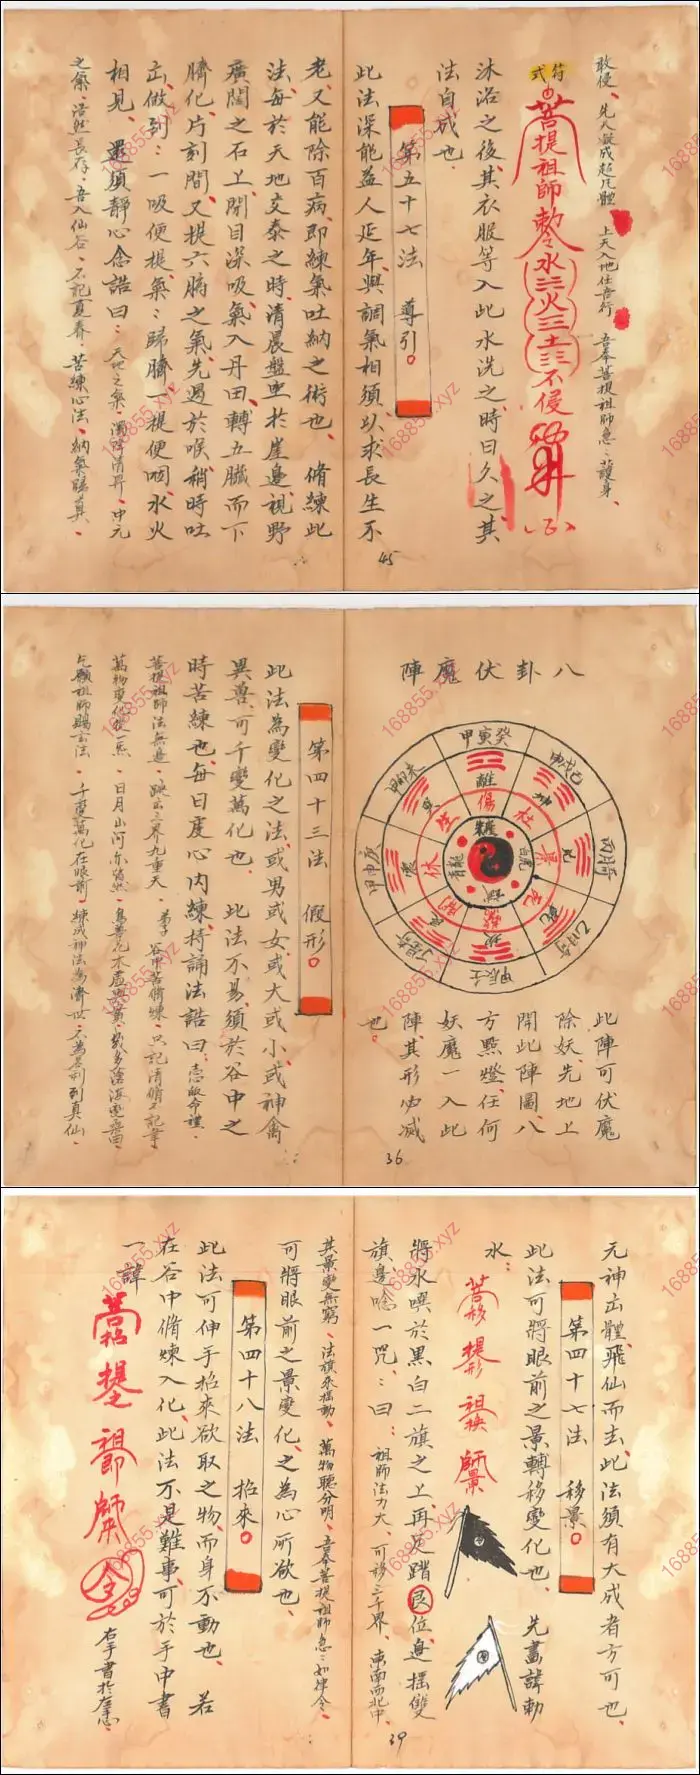 敢侵、先天凝成超凡體 上天入地任吾行 吾奉菩提祖師急急護身、
符式
菩提祖師勅令水火土不侵
沐浴之後其衣服等入此水洗之時日久之其
法自成也、
第五十七法 導引。
此法深能益人延年與調氣相須以求長生不
老、又能除百病、即練氣吐納之術也、脩練此
法、每於天地交泰之時、清晨盤坐於崖邊視野
廣闊之石上、閉目深吸氣入丹田轉五臟而下
臍化、片刻間又提六腑之氣先過於喉、稍時吐
出、做到：一吸便提、氣氣歸臍、一提便咽、水火
相見、還須靜心念誥曰：天地之氣、濁降清昇、中元
之氣、浩然長存、吾入仙谷、不記夏春、苦練心法、納氣歸真、
45
八卦伏魔陣
甲寅癸
離
傷
杜
景
死
驚
開
休
生
坤
乾
坎
艮
震
巽
朱雀
白虎
玄武
青龍
甲辰壬
此陣可伏魔
除妖、先地上
開此陣圖、八
方點燈、任何
妖魔一入此
陣、其形必滅
也。
第四十三法 假形。
此法為變化之法、或男或女、或大或小、或神禽
異獸、可千變萬化也、此法不易、須於谷中之
時苦練也、每日虔心內練、持誦法誥曰：志皈命禮、
菩提祖師法無邊、跳出三界九重天、弟子谷中苦脩煉、只記清脩不記年
萬物變化從一炁、日月山河亦皆然、鳥獸花木虛與實、幾多滄海變桑田
乞願祖師賜玄法、千變萬化在眼前、練成神法為濟世、不為名利到真仙、
36
元神出體、飛仙而去、此法須有大成者方可也、
第四十七法 移景。
此法可將眼前之景轉移變化也、先畫諱勅
水：
菩移 提形 祖換 師景
將水噀於黑白二旗之上、再足踏艮位、邊搖雙
旗邊唸一咒：曰：祖師法力大、可移三千界、東南西北中、
其景變無窮、法旗來搖動、萬物聽分明、吾奉菩提祖師急急如律令、
可將眼前之景變化、之為心所欲也、
第四十八法 招來。
此法可伸手招來欲取之物、而身不動也、若
在谷中脩煉入化、此法不是難事、可於手中書
一諱
菩招 提之 祖即 師來 令
右手書於左手心
39
168855.xyz
168855.xyz
168855.xyz
168855.xyz
168855.xyz
168855.xyz